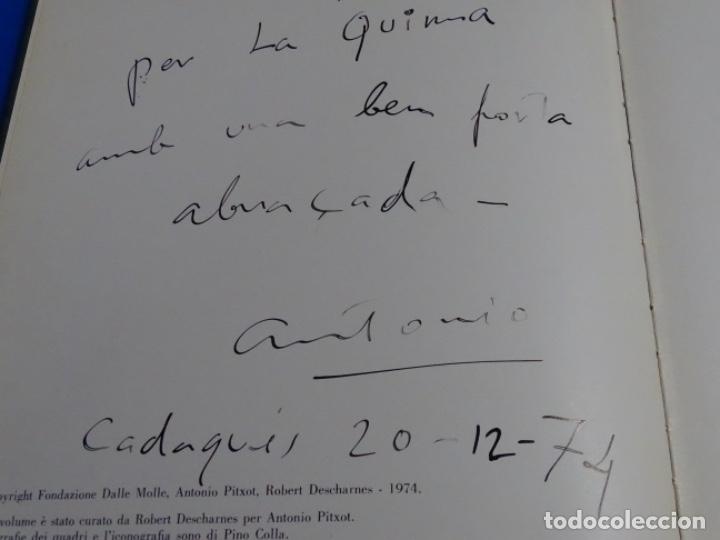 per La Quima
amb una ben forta
abraçada -
Antonio
Cadaqués 20-12-74
opyright Fondazione Dalle Molle, Antonio Pitxot, Robert Descharnes - 1974.
volume è stato curato da Robert Descharnes per Antonio Pitxot.
grafie dei quadri e l'iconografia sono di Pino Colla.
todocoleccion.net